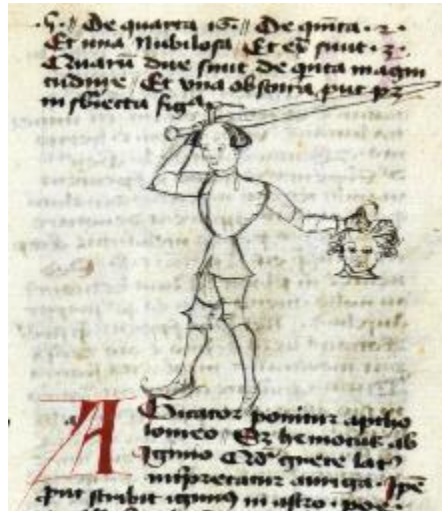 .5. // De quarta 16 // De qu̅ta . 2 .
Et una Nubilosa Et ex̅ sunt . 3 .
Quaru̅ due sunt de qu̅ta magni
tudine / Et una obscura put p̅z
in sbiecta figa
A
a
gitator ponitur a ptho
lomeo
ab
Iginio gnere lat
interpretatur auriga . Ipse
put scribit iginus in astro . poe